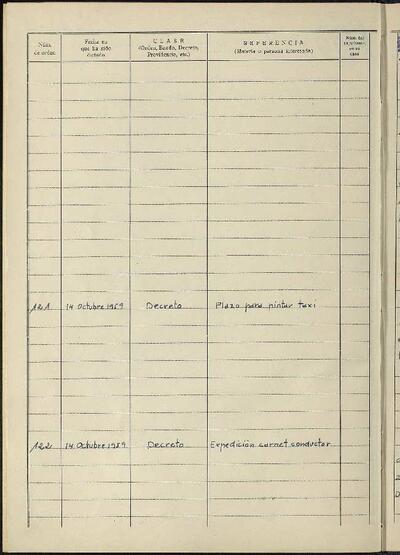 Núm. de orden
Fecha en que ha sido dictada
CLASE (Orden, Bando, Decreto, Providencia, etc.)
REFERENCIA (Materia o persona interesada)
Núm. del
121 14 Octubre 1959 Decreto Plazo para pintar taxi
122 14 Octubre 1959 Decreto Expedición carnet conductor